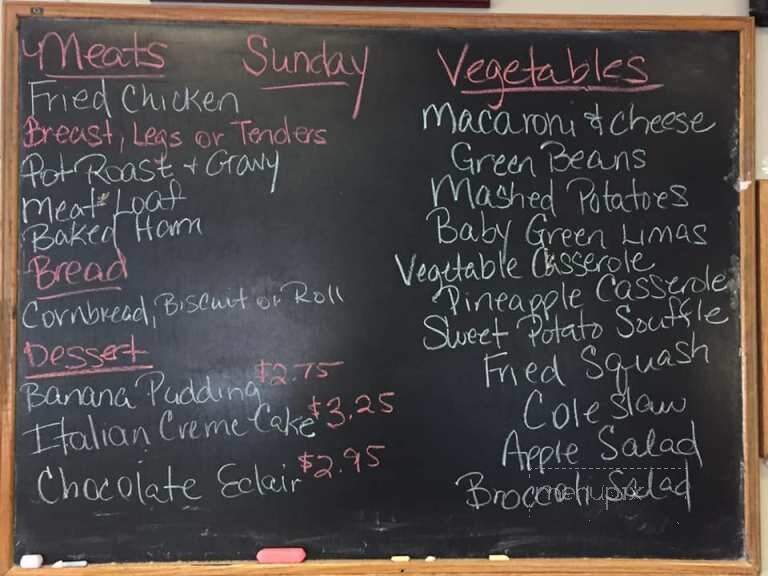 Meats
Sunday
Fried Chicken
Breast, Legs or Tenders
Pot Roast + Gravy
Meat Loaf
Baked Ham
Bread
Cornbread, Biscuit or Roll
Dessert
Banana Pudding $2.75
Italian Creme Cake $3.25
Chocolate Eclair $2.95
Vegetables
Macaroni & Cheese
Green Beans
Mashed Potatoes
Baby Green Limas
Vegetable Casserole
Pineapple Casserole
Sweet Potato Souffle
Fried Squash
Cole Slaw
Apple Salad
Broccoli Salad
menupix